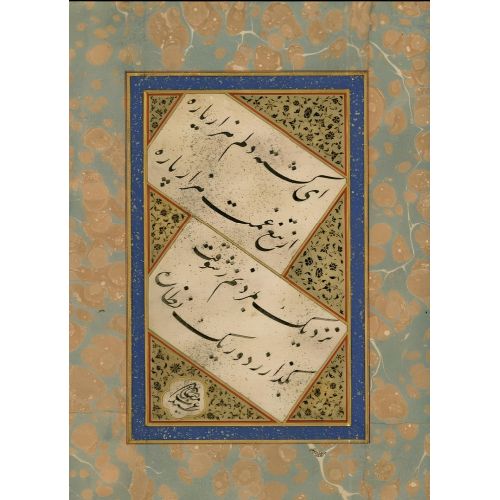 ای کشته دلم هزار پاره
از تیغ غمت هزار پاره
نزدیک بمردنم ز شوقت
بگذار ز دور یک نظاره